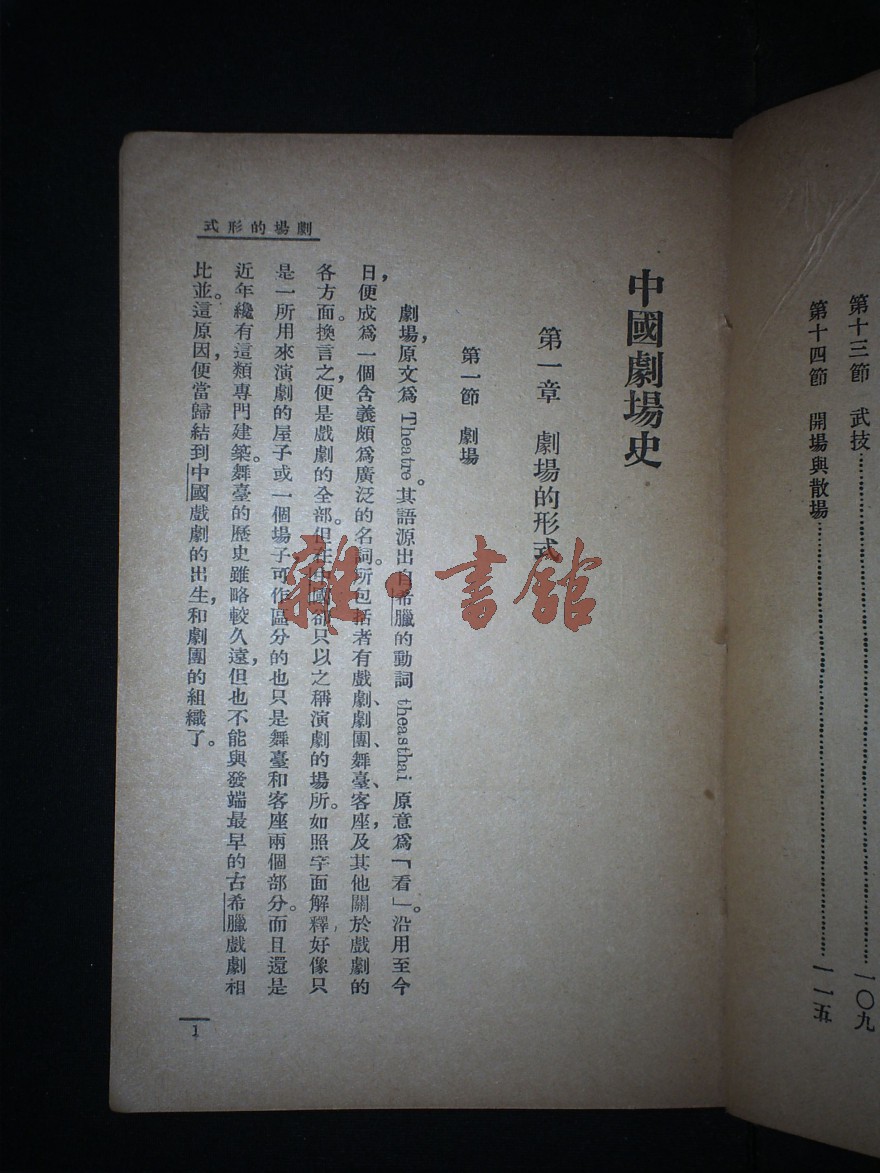 第十三節　武技…………一〇九
第十四節　開場與散場…………一一五
中國劇場史
第一章　劇場的形式
第一節　劇場
劇場，原文爲Theatre。其語源出自希臘的動詞theasthai原意爲「看」。沿用至今
日，便成爲一個含義頗爲廣泛的名詞。所包括者有戲劇、劇團、舞臺、客座，及其他關於戲劇的
各方面。換言之，便是戲劇的全部。但在中國卻只以之稱演劇的場所。如照字面解釋，好像只
是一所用來演劇的屋子或一個場子，可作區分的也只是舞臺和客座兩個部分。而且還是
近年纔有這類專門建築。舞臺的歷史雖略較久遠，但也不能與發端最早的古希臘戲劇相
比並。這原因，便當歸結到中國戲劇的出生，和劇團的組織了。
劇場的形式
1
雜·書館